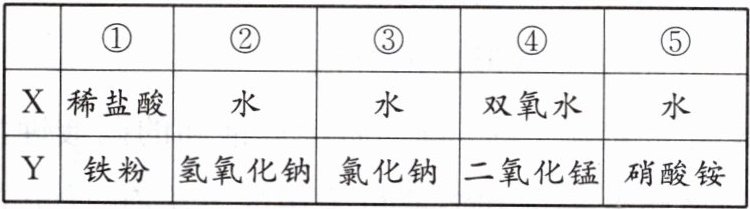 ① ② ③ ④ ⑤
X 稀盐酸 水 水 双氧水 水
Y 铁粉 氢氧化钠 氯化钠 二氧化锰 硝酸铵